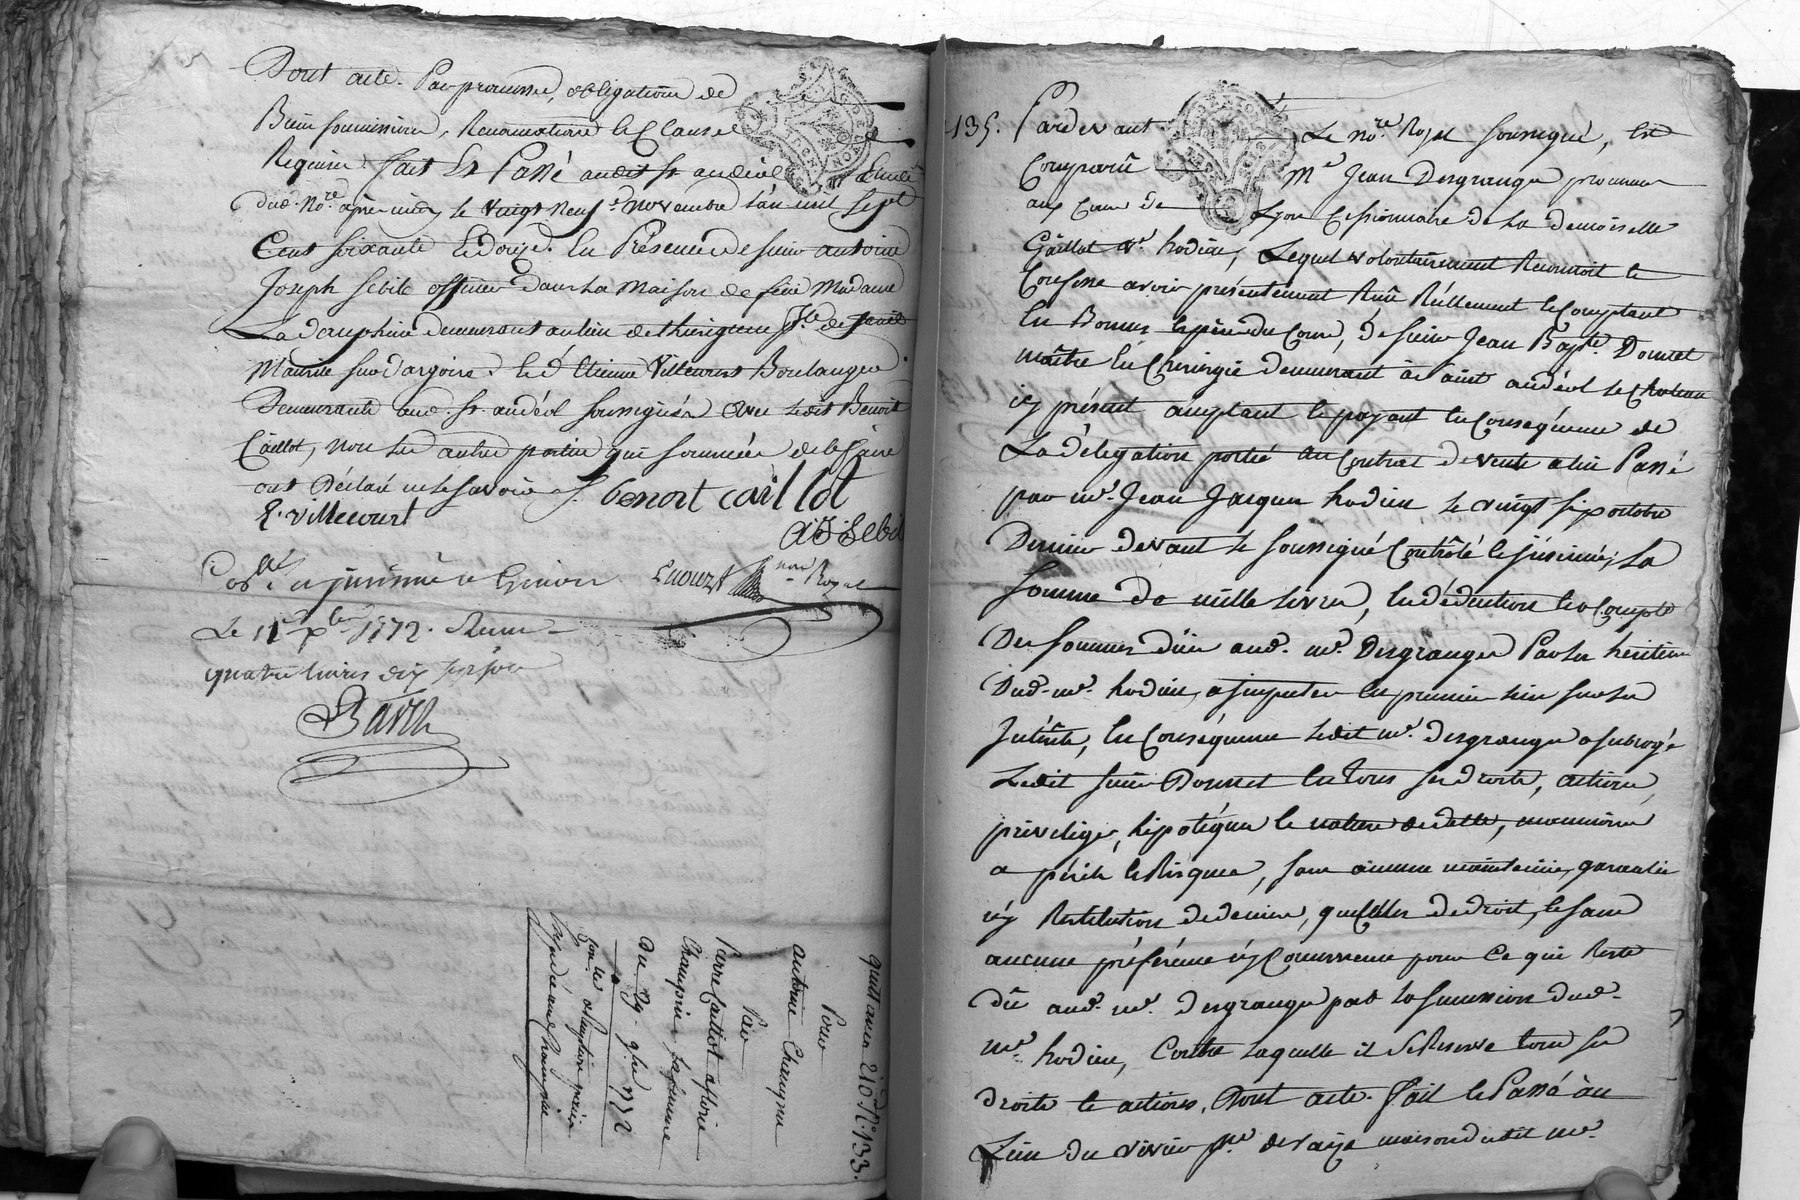 Dont acte. Par promesse, obligations de
Biens soumissions, Renonciations & Clauses
Requises fait Et Passé audit St andéol Etude
dud. Nore. après midy le vingt neuf novembre l'an mil sept
Cent soixante Et douze. En Présence de sieur antoine
Joseph Sebile officier dans la Maison de feüe Madame
La dauphine demeurant au lieu de psse de Saint
Maurice sur dargoire. & d'Etienne Villecourt Boulanger
Demeurants aud. St. andéol soussignés avec ledit Benoit
Caillot, non les autres parties qui sommées de le faire
ont Déclaré ne le savoir
benoit caillot
E. villecourt
AJ Sebile
nore Royal
Le 11e Xbre 1772. Reçu
quatre livres dix sept sols
Barth
quittance 210. lt. 133.
Pour
antoine Champin
Par
Pierre Caillot affiné
Champin sa femme
Du 29. 9bre 1772
135. Pardevant Le Nore. Royal soussigné, Est
Comparu Me Jean Desgranges procureur
aux Cours de Lyon Cessionnaire de La demoiselle
Caillot ve. hodieu, Lequel volontairement Reconnoit &
Confesse avoir présentement Reçu Réellement & Comptant
En Bonnes Espèces du Cours, de sieur Jean Bapte. Donnet
maitre En Chirurgie demeurant à saint andéol le Chateau
icy présent acceptant & payant En Conséquence de
La délégation portée au Contrat de vente a lui Passé
par me. Jean Jacques hodieu le vingt six octobre
Dernier devant le soussigné Contrôlé & insinué, La
somme de mille livres, En déduction & a Compte
Des sommes dües aud. me. Desgranges Par les héritiers
Dud. me. hodieu, a imputer En premier lieu sur les
Intérêts, En Conséquence ledit me. desgranges a subrogé
Ledit sieur Donnet En tous ses droits, actions,
privilèges, hipotéques & nature de dette, néanmoins
a périls & Risques, sans aucune maintenüe, garantie
ny Restitution de deniers, que celles de droit, & sans
aucune préférence ny Concurrence pour Ce qui Reste
dû aud. me. desgranges par la succession dud.
me. hodieu, Contre laquelle il se Reserve tous ses
droits & actions, Dont acte. fait & Passé au
Lieu du vivier psse de vaise maison dudit me.